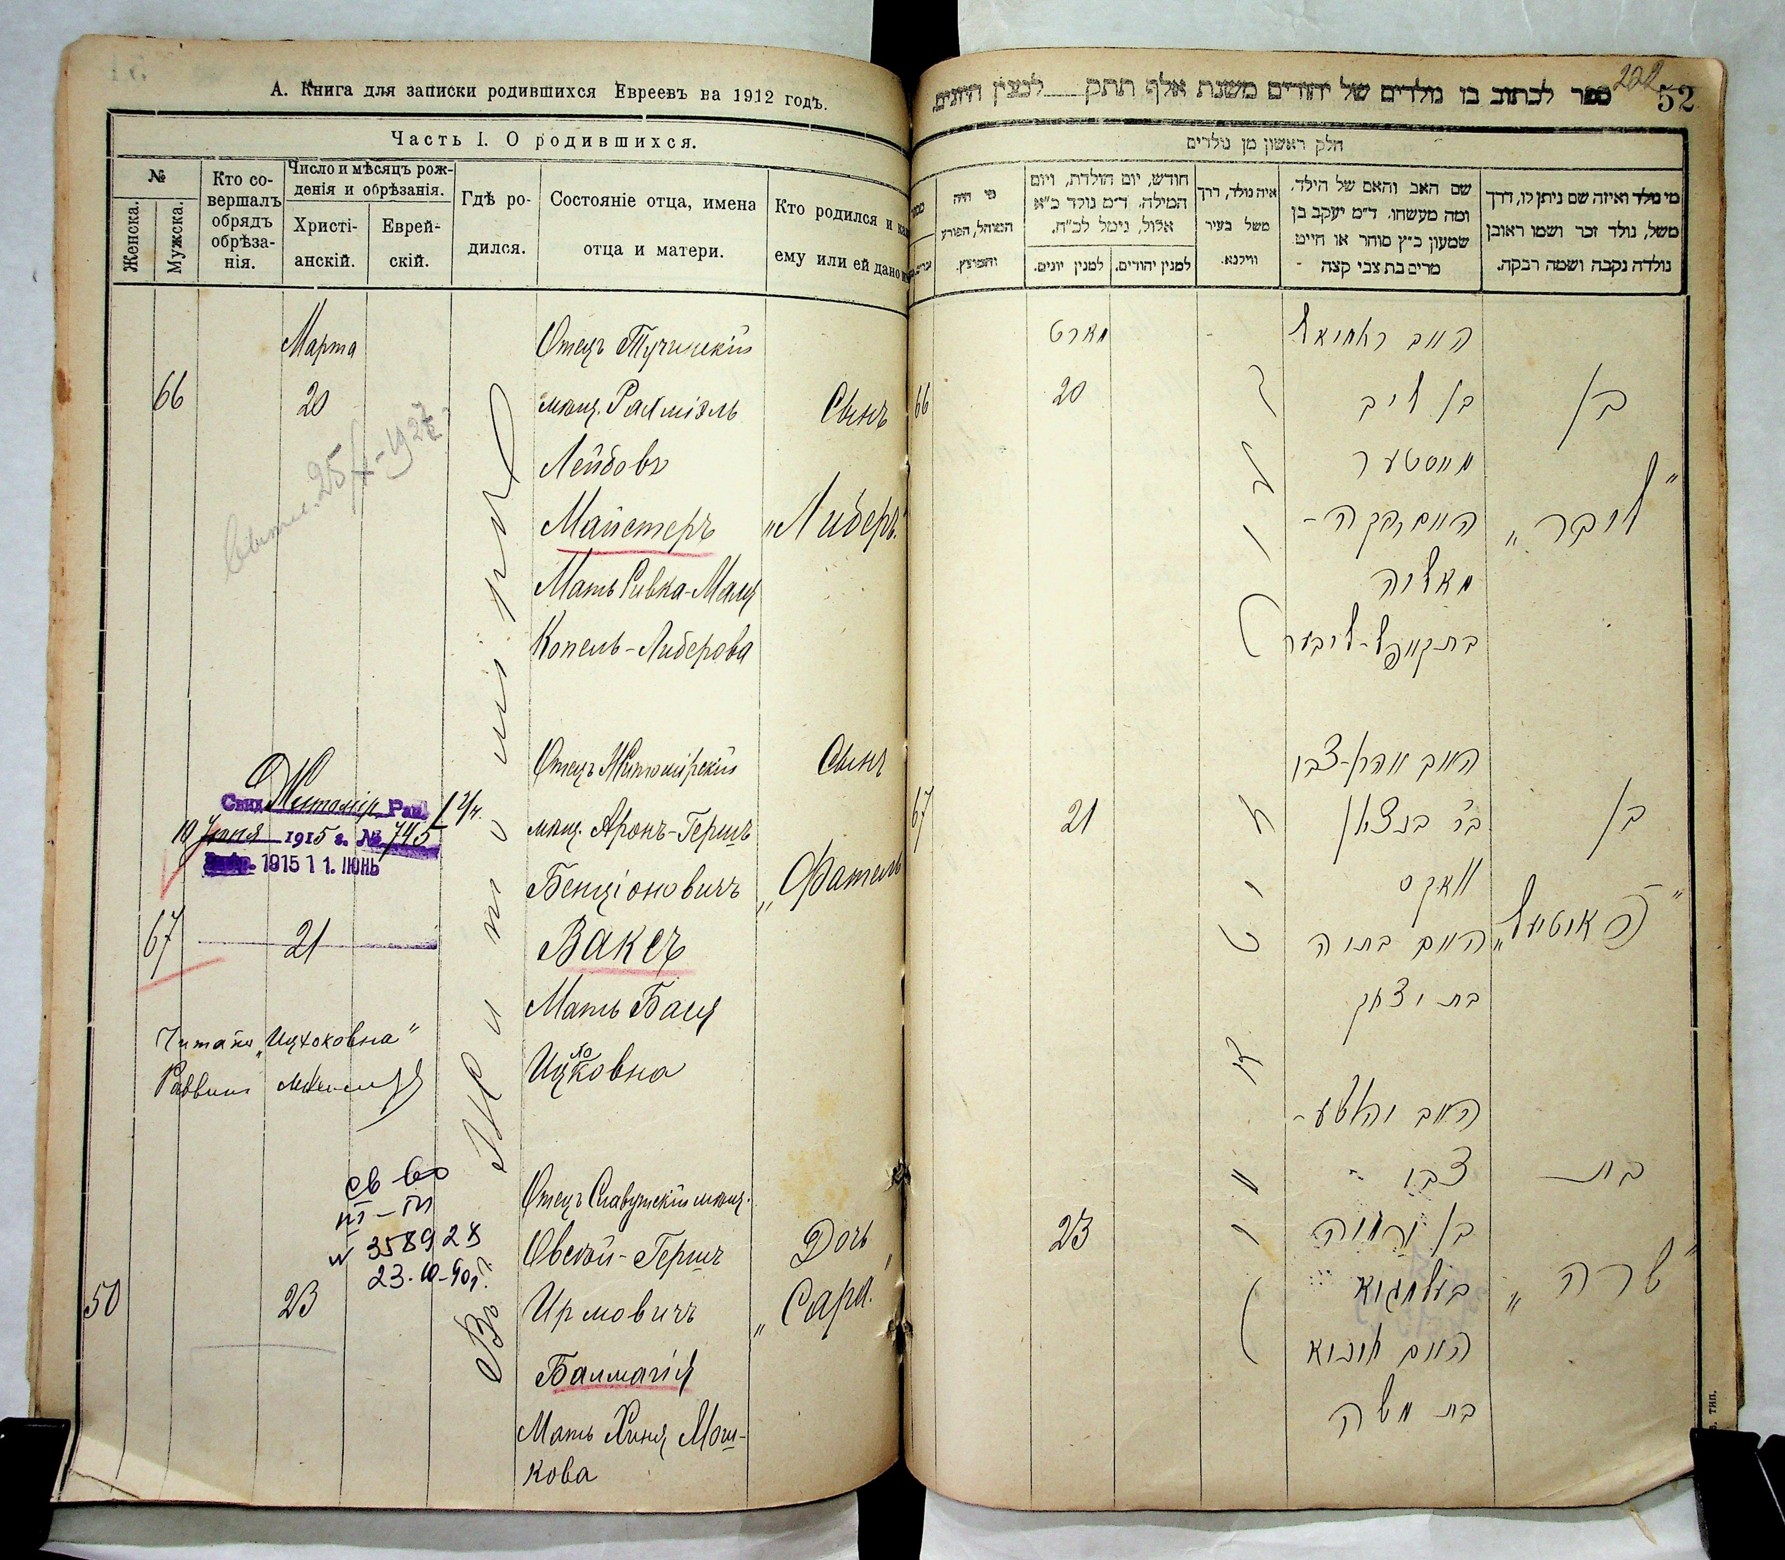 А. Книга для записки родившихся Евреевъ на 1912 годъ.
Часть I. О родившихся.
№
Женска.
Мужска.
Кто со-
вершалъ
обрядъ
обрѣза-
нія.
Число и мѣсяцъ рож-
денія и обрѣзанія.
Христі-
анскій.
Еврей-
скій.
Гдѣ ро-
дился.
Состояніе отца, имена
отца и матери.
Кто родился и
ему или ей дано
Марта
66
20
Отецъ Тучинскій
мѣщ. Рахміэль
Лейбовъ
Майстеръ
Мать Ривка-Маля
Копель-Либерова
Сынъ
„Либеръ“
25/X-1927
Въ Житомірѣ
Житомір. Рав.
10 Іюня 1915 г. № 745
1915 11. ІЮНЬ
67
21
Отецъ Житомірскій
мѣщ. Аронъ-Гершъ
Бенціоновичъ
Ваксъ
Мать Бася
Ицковна
хо
Сынъ
„Фатель
Читано „Ицхоковна“
Раввинъ
св-во
III-ТП
№ 358928
23.10-40г.
50
23
Отецъ Славутскій мѣщ.
Овсей-Гершъ
Ирмовичъ
Балмагія
Мать Хиня Мош-
кова
Дочь
„Сара“
202
52
ספר לכתוב בו נולדים של יהודים משנת אלף תתק לנצין היונים
חלק ראשון מן נולדים
מי נולד ואיזה שם ניתן לו, דרך
משל, נולד זכר ושמו ראובן
נולדה נקבה ושמה רבקה.
שם האב והאם של הילד,
ומה מעשהו. ד״מ יעקב בן
שמעון כ״ץ סוחר או חייט
מרים בת צבי קצה
איה נולד, דרך
משל בעיר
ווילנא.
חודש, יום הולדת, ויום
המילה. ד״מ נולד כ״א
אלול, נימל לכ״ח.
למנין יהודים.
למנין יונים.
מי היה
המוהל, הפורע
והמוצץ.
מארט
66
20
האב ראחמיאל
בן ליב
מייסטער
האם רבקה-
מאליה
בת קאפל-ליבער
בן
„ליבר“
זיטאמיר
67
21
האב אהרן-צבי
בר בנציון
וואקס
האם בתיה
בת יצחק
בן
23
האב יהושע-
צבי
בן ירמיה
באלמגיא
האם חיניא
בת משה
בת
„שרה“